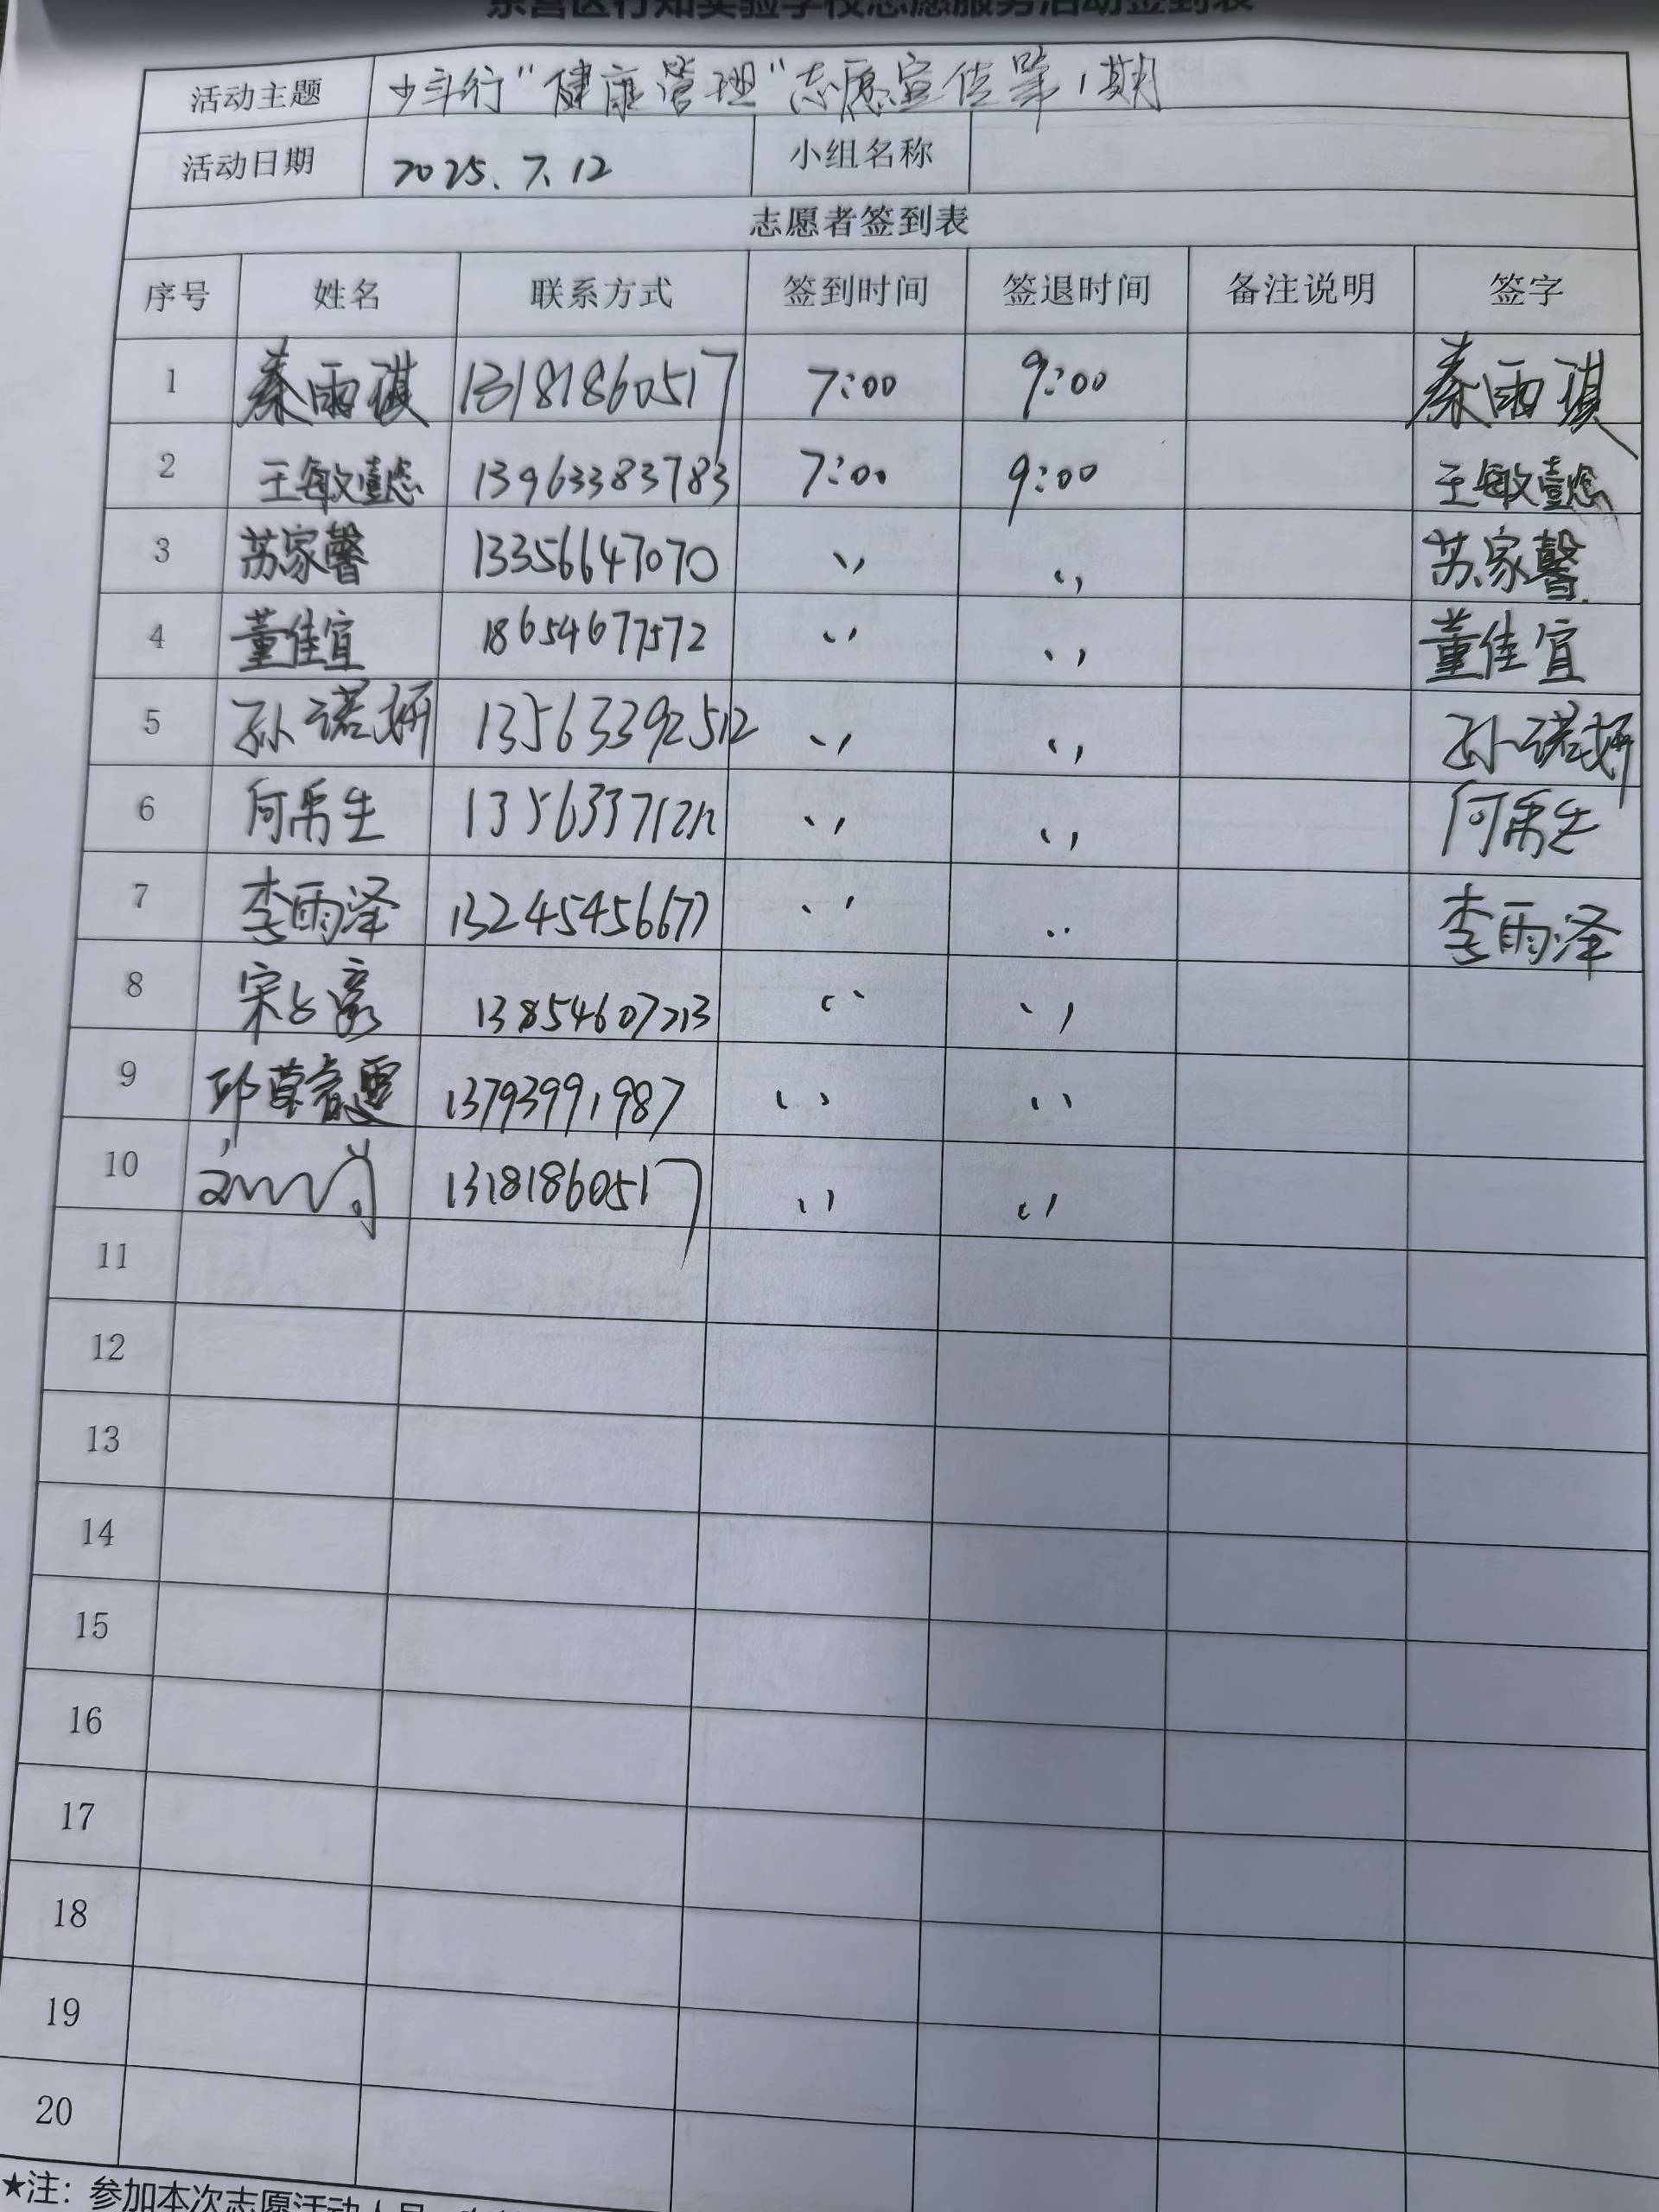 东营区行知实验学校志愿服务活动签到表
活动主题 少年行"健康管理"志愿宣传第1期
活动日期 2025.7.12 小组名称
志愿者签到表
序号 姓名 联系方式 签到时间 签退时间 备注说明 签字
1 秦雨琪 13181860517 7:00 9:00 秦雨琪
2 王敏懿 13963383783 7:00 9:00 王敏懿
3 苏家馨 13356647070 〃 〃 苏家馨
4 董佳宜 18654677572 〃 〃 董佳宜
5 孙诺妍 13563392512 〃 〃 孙诺妍
6 何禹生 〃 〃 何禹生
7 李雨泽 13245456677 〃 〃 李雨泽
8 宋 豪 〃 〃
9 邱 13793991987 〃 〃
10 13181860517 〃 〃
11
12
13
14
15
16
17
18
19
20
★注：参加本次志愿活动人员